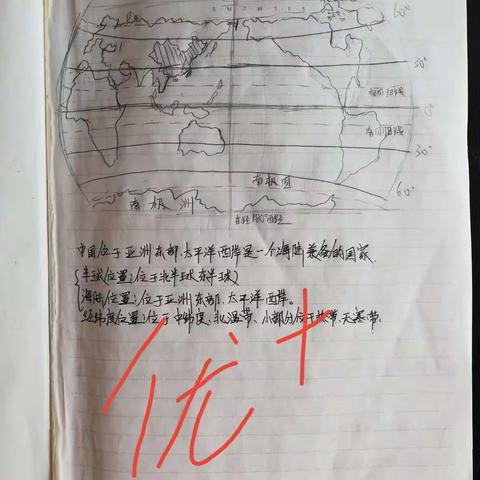 S M T W T F S
60°
30°
北回归线
0°
南回归线
30°
南极圈
60°
南极洲
中国位于亚洲东部、太平洋西岸是一个海陆兼备的国家.
半球位置:位于北半球东半球
海陆位置:位于亚洲东部、太平洋西岸。
经纬度位置:位于中纬度、北温带、小部分位于热带、无寒带.
优+